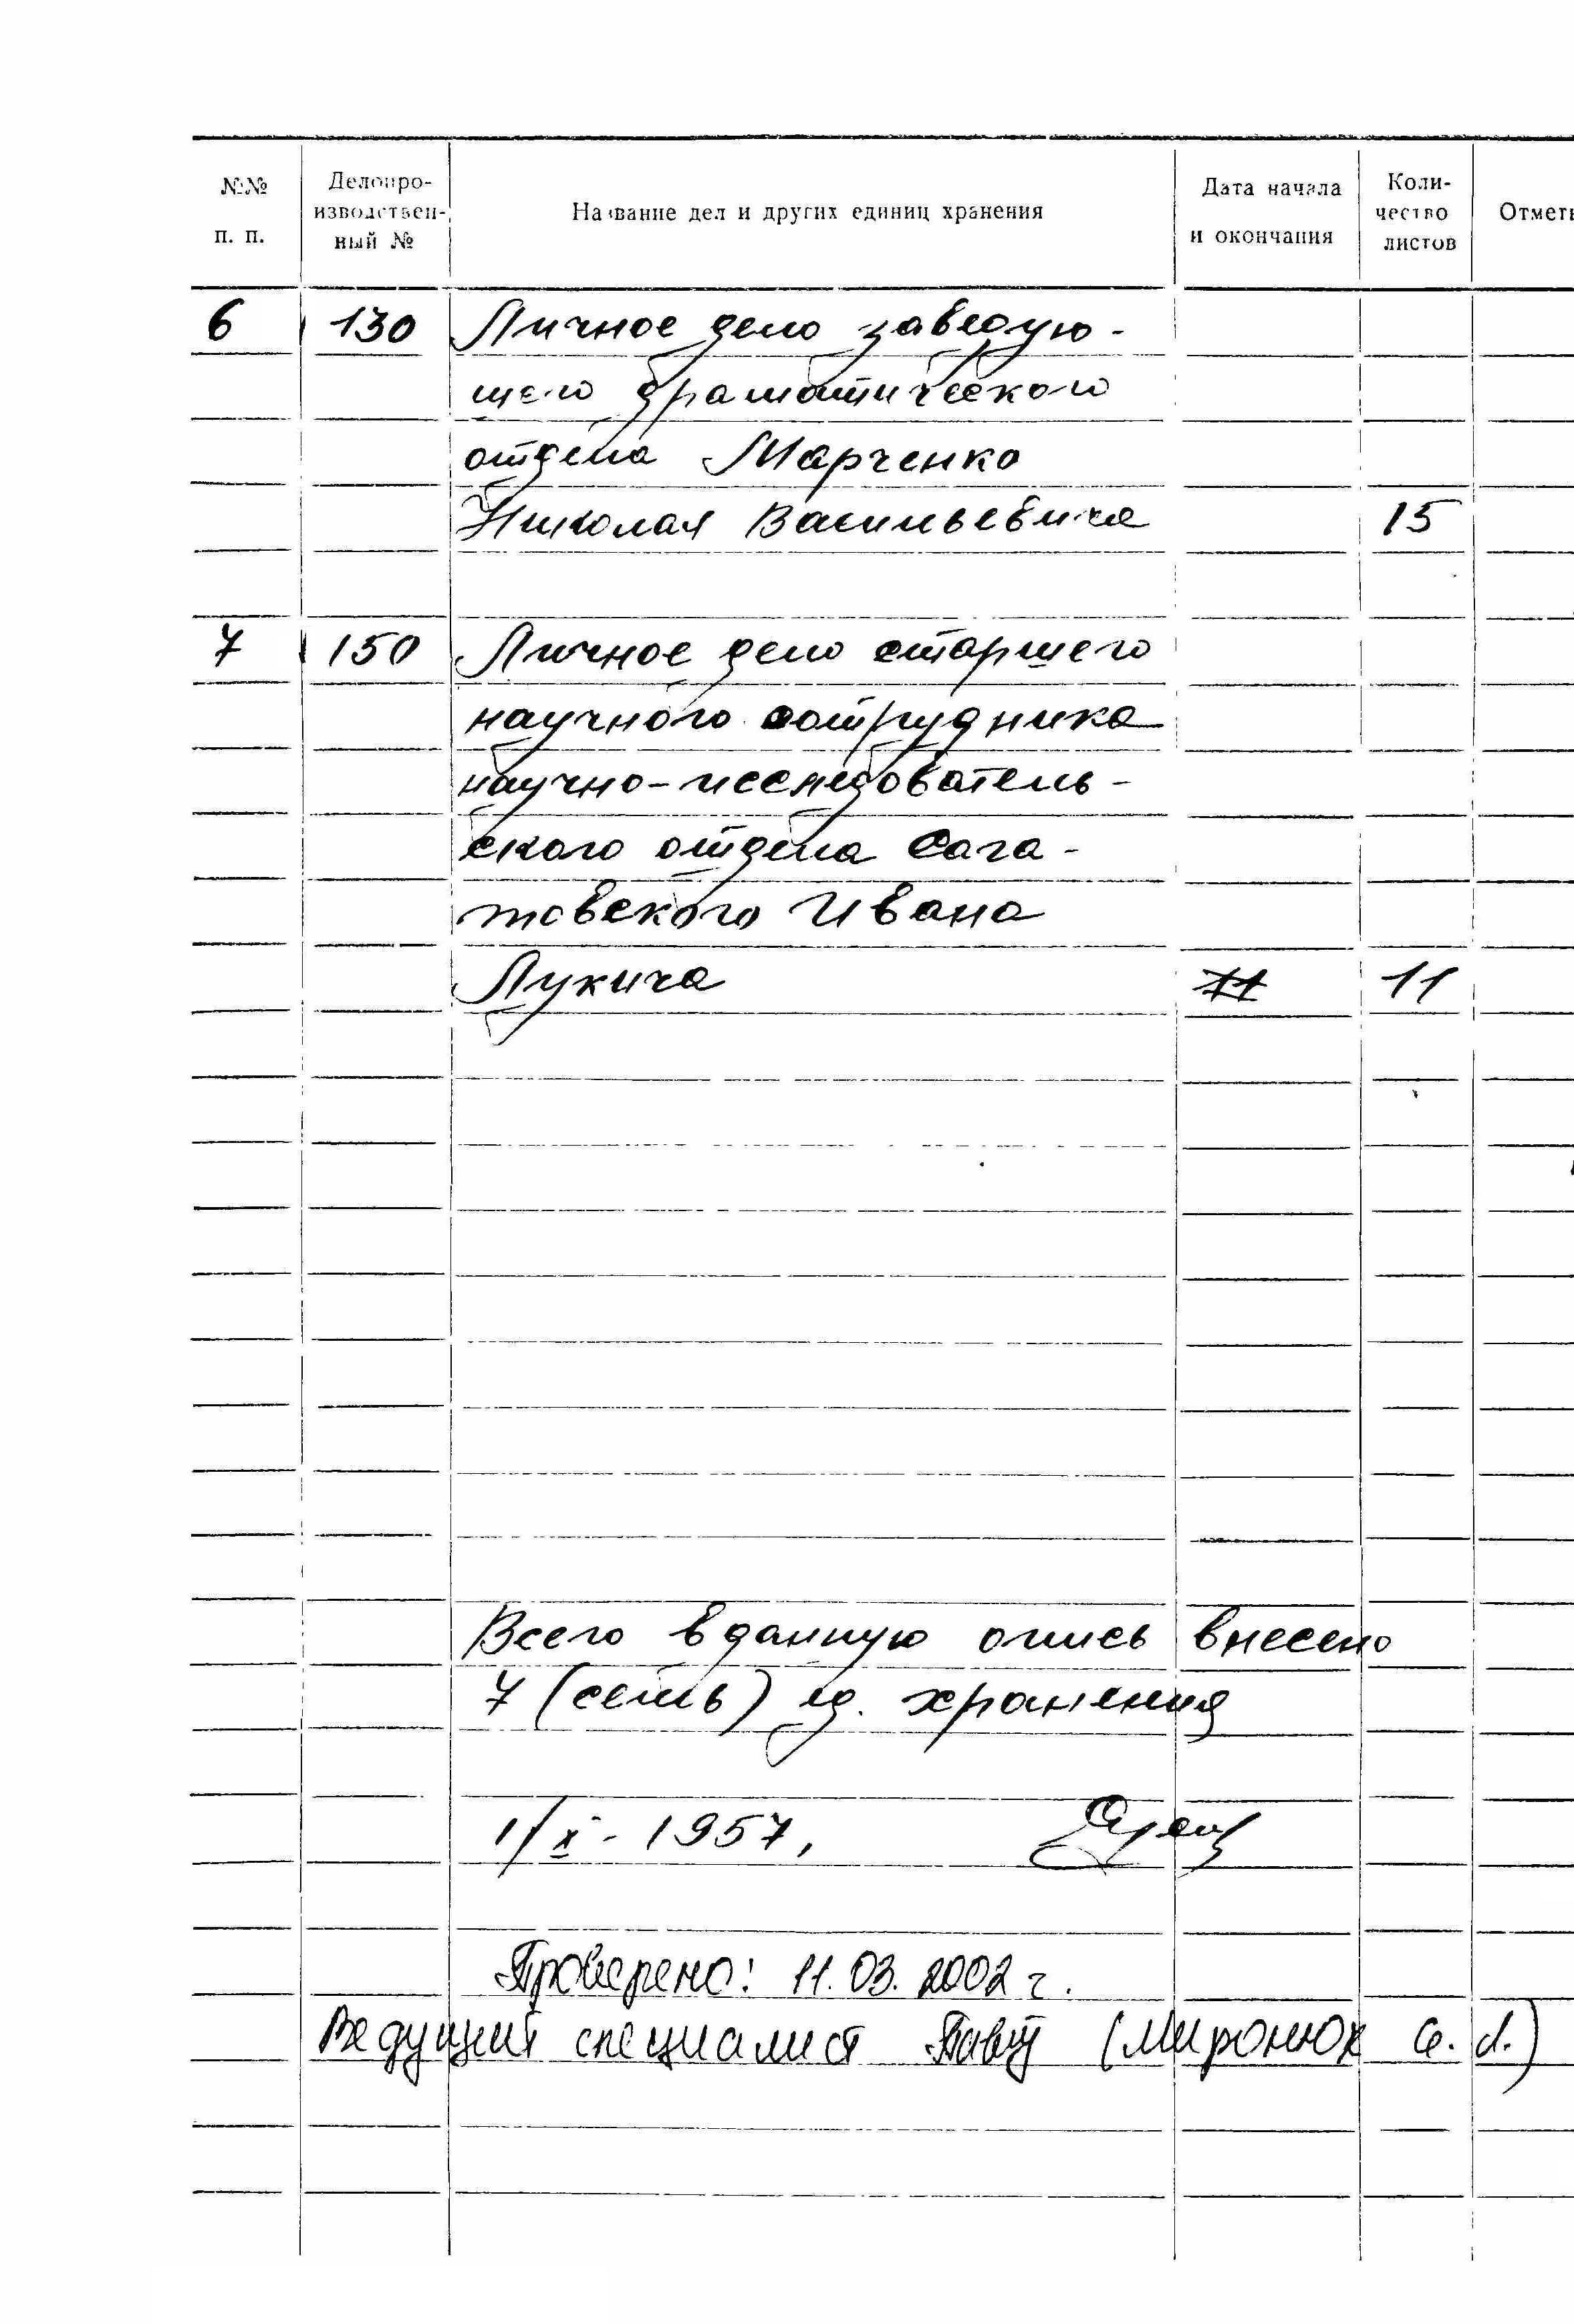 №№ п. п.
Делопро-
изводствен-
ный №
Название дел и других единиц хранения
Дата начала
и окончания
Коли-
чество
листов
Отмет
6 130 Личное дело заведую-
щего драматического
отдела Марченко
Николая Васильевича 15
7 150 Личное дело старшего
научного сотрудника
научно-исследователь-
ского отдела Сага-
товского Ивана
Лукича 11 11
Всего в данную опись внесено
7 (семь) ед. хранения
1/X - 1957,
Проверено: 11.03.2002 г.
Ведущий специалист (Миронюк